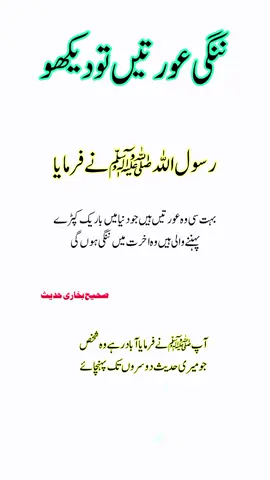 ننگی عورتیں تو دیکھو
رسول اللہ ﷺ نے فرمایا
بہت سی وہ عورتیں ہیں جو دنیا میں باریک کپڑے
پہننے والی ہیں وہ اخرت میں ننگی ہوں گی
صحیح بخاری حدیث
آپ ﷺ نے فرمایا آباد رہے وہ شخص
جو میری حدیث دوسروں تک پہنچائے